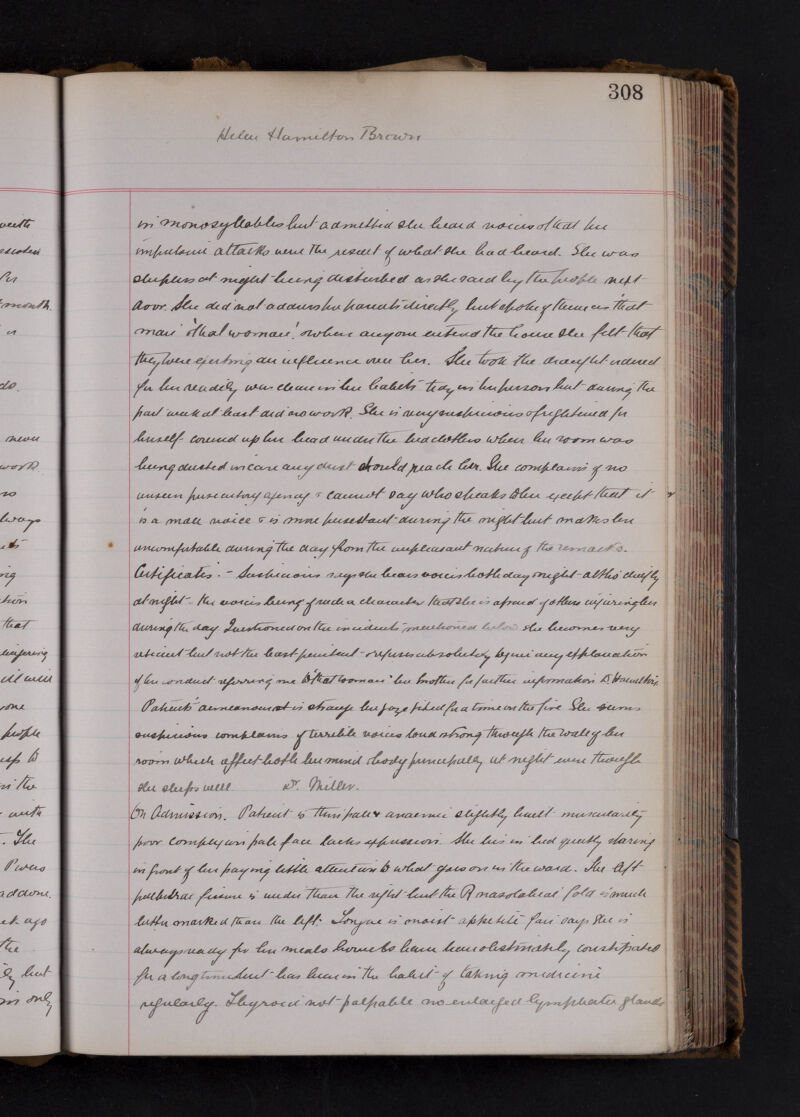 308
Helen Hamilton Brown
in monosyllables but admitted she heard voices & that her
impulsive attacks were the result of what she had heard. She was
sleepless at night being disturbed as she said by the people next
door. She did not address her parents directly but spoke of them as "that
man" & "that woman". & when anyone entered the house she felt that
they were exerting an influence over her. She took the draught ordered
for her readily was clean in her habits tidy in her person but during the
past week at least did no work. She is very suspicious & frightened for
herself covered up her head under the bedclothes when her room was
being dusted in case any dust should reach her. She complains of no
unseen persecutory agency & cannot say who speaks to her except that it
is a male voice & is more persistant during the night but makes her
uncomfortable during the day from the unpleasant nature of the remarks.
Certificates. - Suspicious says she hears voices both day & night - altho' chiefly
at night - the voices being of such a character that she is afraid of others injuring her
during the day Questioned on the incidents mentioned below she becomes very
reticent but not the least penitent - & refuses absolutely to give any explanation
of her conduct referring me to "that woman" her mother for further information Dr. Hamilton
Patients' announcement is strange her gaze fixed for a time on the fire She seems
suspicious complains of terrible voices loud & strong through the wall of her
room which affect both her mind & body principally at night even though
she sleeps well Dr. Miller.
On Admission. Patient is thin pale & anaemic slightly built muscularity
poor complexion pale face lacks expression. She lies in bed quietly staring
in front of her paying little attention to what goes on in the ward. The left
palpebral fissure is wider than the right but the R nasolabial fold is much
better marked than the left. Tongue is moist appetite fair says she is
always ready for her meals bowels have been obstinately constipated
for a long time but has been in the habit of taking medicine
regularly. Thyroid not palpable no enlarged lymphatic glands